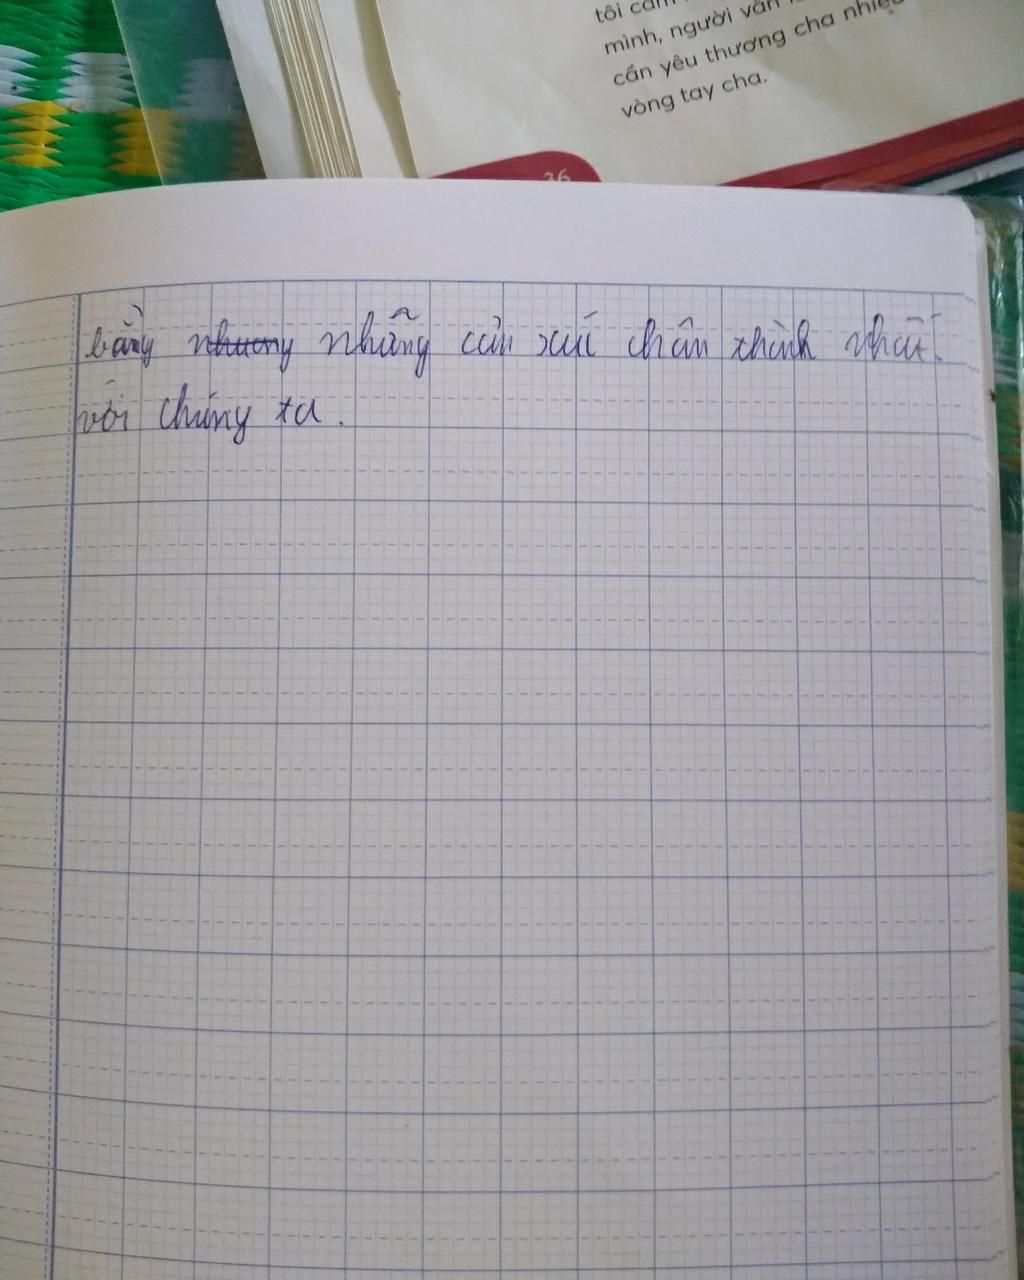 tôi cảm
mình, người vẫn
cần yêu thương cha nhiều
vòng tay cha.
36
bằng nhương những cản xuí chân thành nhất
với chúng ta.